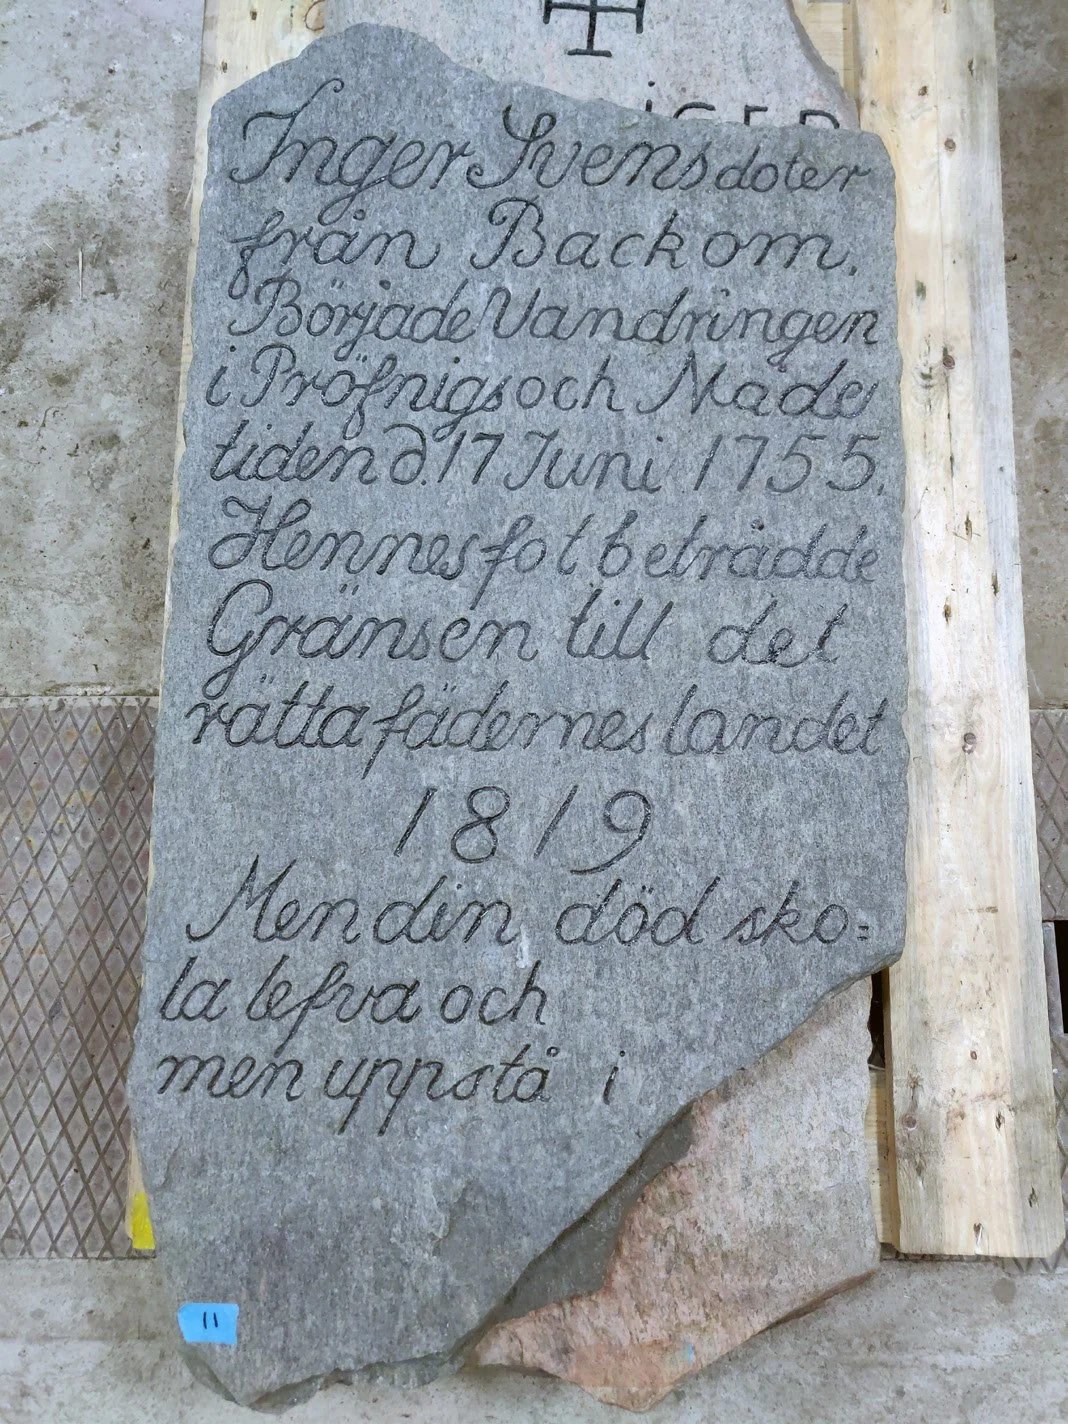 IGER
Inger Svensdoter
från Backom.
Började Vandringen
i Pröfnigs och Nade
tiden d. 17 Juni 1755.
Hennes fot beträdde
Gränsen till det
rätta fädernes landet
1819
Men din död sko=
la lefva och
men uppstå i
11